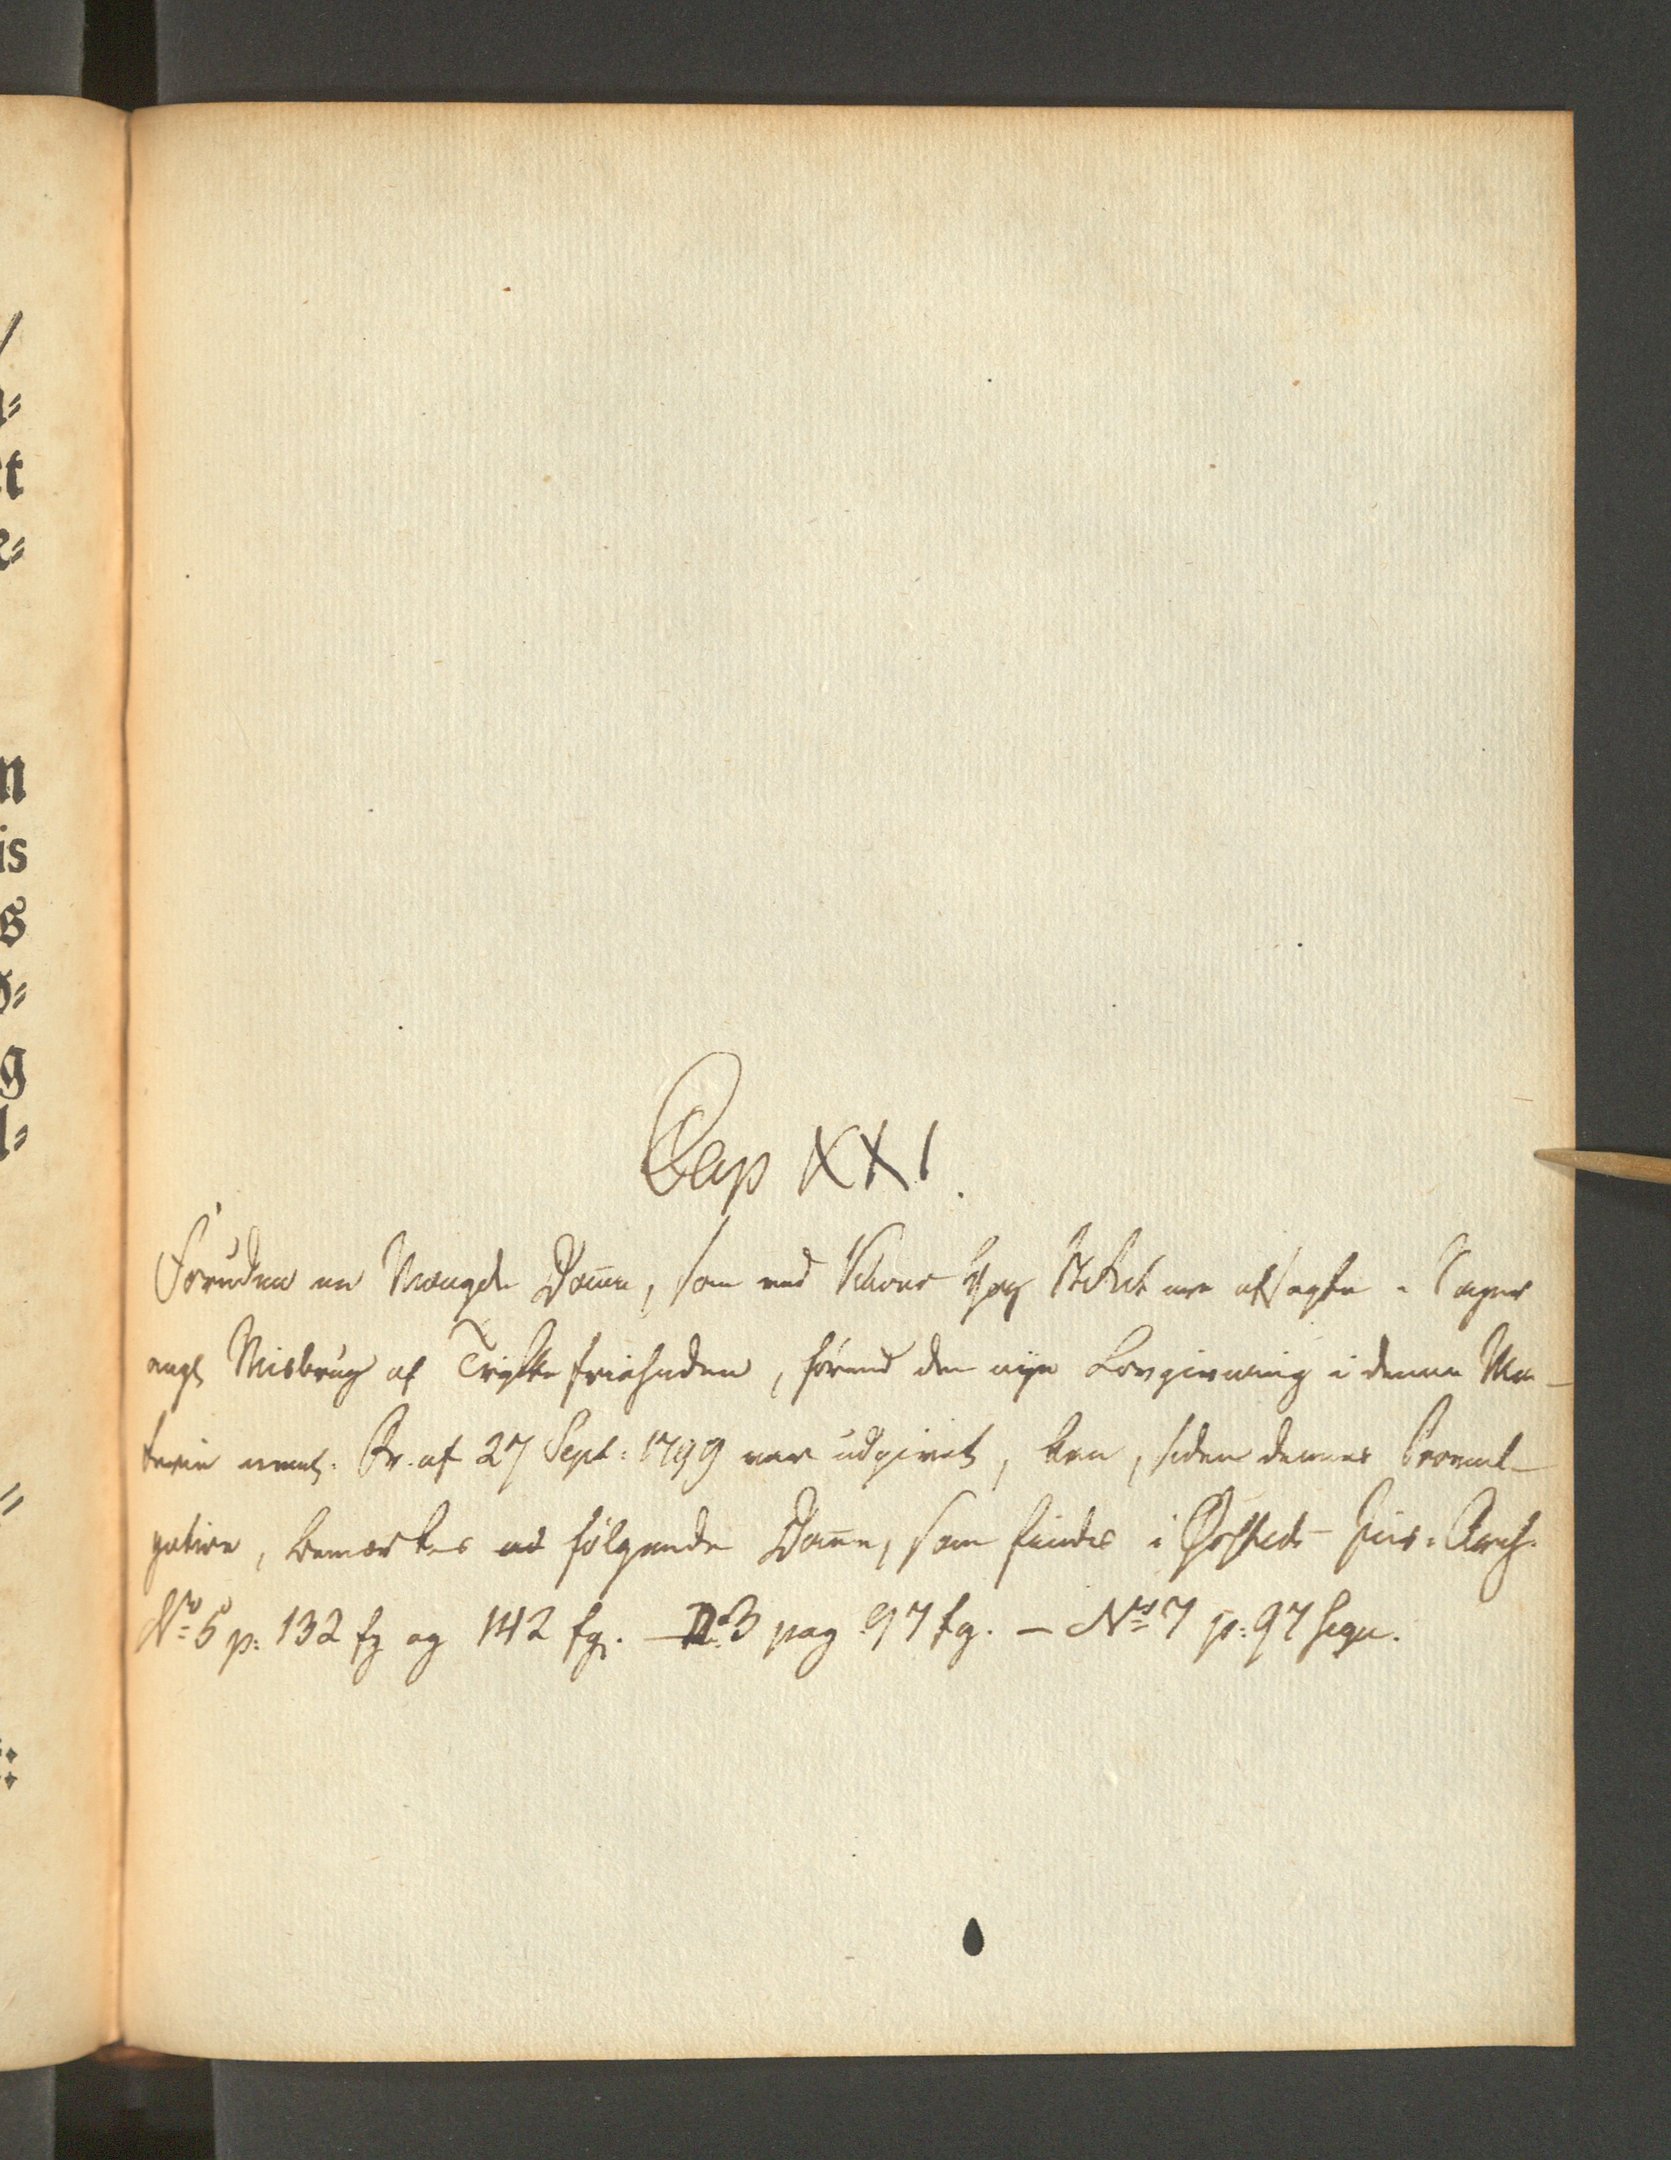 Cap XXI.
Foruden en Mængde Domme, som ved HofR ere afsagte i Sager
ang. Misbrug af Trykkefriheden, førend den nye Lovgivning i denne Ma-
terie neml. Fr. af 27 Sept: 1799 var udgivet, kan, siden dennes Promul-
gation, bemærkes følgende Domme, som findes i Ørsteds Jur. Arch.
No 5 p: 132 fg og 142 fg. — No 3 pag 97 fg. — No 7 p: 97 sequ.